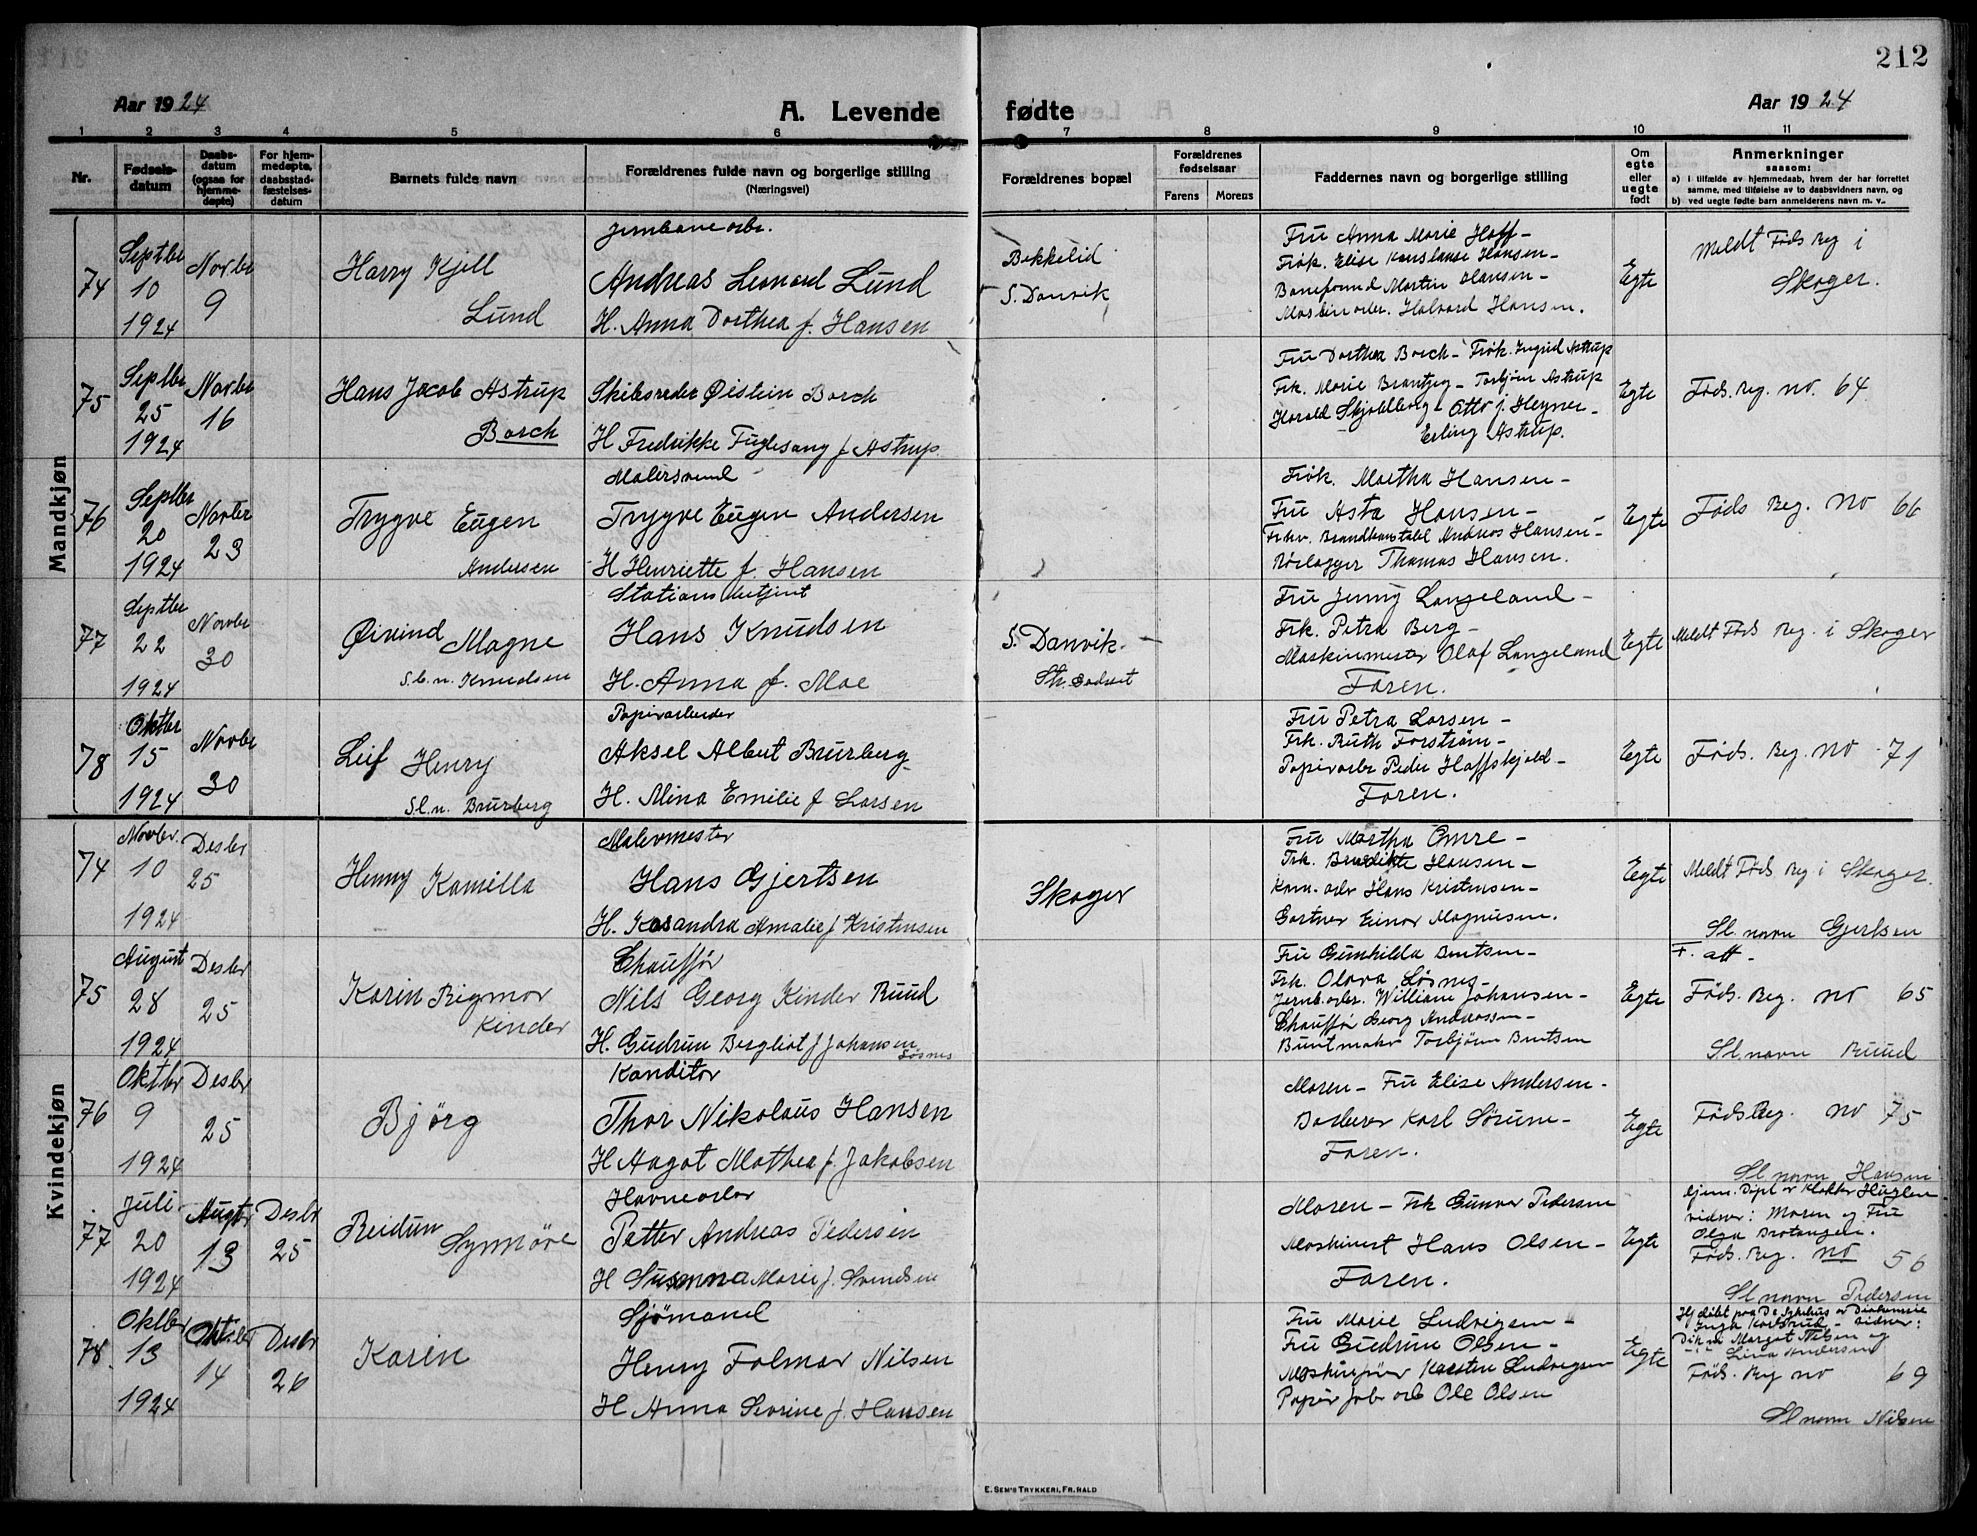 212
Aar 1924
A. Levende fødte
Aar 1924
1 2 3 4 5 6 7 8 9 10 11
Nr.
Fødsels-
datum
Daabs-
datum
(ogsaa for
hjemme-
døpte)
For hjem-
medøpte,
daabsstad-
fæstelses-
datum
Barnets fulde navn
Forældrenes fulde navn og borgerlige stilling
(Næringsvei)
Forældrenes bopæl
Forældrenes
fødselsaar
Farens Morens
Faddernes navn og borgerlige stilling
Om
egte
eller
uegte
født
Anmerkninger
saasom:
a) i tilfælde av hjemmedaab, hvem der har forrettet
samme, med tilføielse av to daabsvidners navn, og
b) ved uegte fødte barn anmelderens navn m. v.
Mandkjøn
74
Septbr
10
1924
Novbr
9
Harry Kjell
Lund
Jernbanearbr.
Andreas Leonard Lund
H. Anna Dorthea f. Hansen
Bekkelid
S. Danvik
Fru Anna Marie Hoff -
Frøk. Elise Konstanse Hansen -
Baneformand Martin Hansen -
Maskinarbr. Halvard Hansen.
Egte
Meldt Føds Reg i
Skoger.
75
Septbr
25
1924
Novbr
16
Hans Jacob Astrup
Borch
Skibsreder Øistein Borch
H Fredrikke Fuglesang f Astrup
Fru Dorthea Borch - Frøk. Ingrid Astrup
Frk. Marie Brantzeg - Torbjørn Astrup
Harald Skjoldborg - Otto j. Heyner -
Erling Astrup.
Egte
Føds. Reg. no. 64
76
Septbr
20
1924
Novbr
23
Trygve Eugen
Andersen
Malersvend
Trygve Eugen Andersen
H Henriette f. Hansen
Frøk. Martha Hansen -
Fru Asta Hansen -
Fhv. Brandkonstabel Andreas Hansen -
Rørlægger Thomas Hansen.
Egte
Føds Reg. no 66
77
Septbr
22
1924
Novbr
30
Øivind Magne
S.l.n. Knudsen
Stationsbetjent
Hans Knudsen
H. Anna f. Moe
S. Danvik.
Fru Jenny Langeland -
Frk. Petra Berg -
Maskinmester Olaf Langeland
Faren.
Egte
Meldt Føds Reg. i Skoger
78
Oktbr
15
1924
Novbr
30
Leif Henry
S.l.n. Brurberg
Papirarbeider
Aksel Albert Brurberg
H. Mina Emilie f Larsen
Fru Petra Larsen -
Frk. Ruth Forstrøm -
Papirarbr Peder Haffskjold -
Faren.
Egte
Føds. Reg. no 71
Kvindekjøn
74
Novbr.
10
1924
Desbr
25
Henny Kamilla
Malermester
Hans Gjertsen
H. Kasandra Amalie f Kristensen
Skoger
Fru Martha Omre -
Frk. Benedikte Hansen -
Kom. arbr Hans Kristensen -
Gartner Einar Magnusen.
Egte
Meldt Føds Reg i Skoger.
Sl. navn Gjertsen
75
August
28
1924
Desbr
25
Karin Rigmor
Kinder
Chauffør
Nils Georg Kinder Ruud
H. Gudrun Bergliot f Johansen
Løsnes
Fru Gunhilda Berntsen -
Frk. Olava Løsnes -
Jernb.arbr. William Johansen -
Chauffør Georg Andreassen -
Buntmaker Torbjørn Berntsen
Egte
F. att -
Føds. Reg. no 65
Sl. navn Ruud
76
Oktbr
9
1924
Desbr
25
Bjørg
Konditor
Thor Nikolaus Hansen
H Aagot Mathea f. Jakobsen
Moren - Fru Elise Andersen -
Barberer Karl Sørum -
Faren.
Egte
Føds Reg. no 75
Sl navn Hansen
77
Juli
20
1924
Augtr
13
Desbr
25
Reidun Synnøve
Havnearbr
Petter Andreas Pedersen
H Susanna Marie f. Svendsen
Moren - Frk Gunvor Pedersen
Maskinist Hans Olsen -
Faren.
Egte
Hjem. Døpt av Klokker Huglen
vidner: Moren og Fru
Olga Brotangen.
Føds. Reg. no 56
Sl navn Pedersen
78
Oktbr
13
1924
Oktbr
14
Desbr
26
Karin
Sjømand
Henry Folmar Nilsen
H Anna Sevrine f. Hansen
Fru Marie Ludvigsen -
Fru Gudrun Olsen -
Maskinfører Karsten Ludvigsen
Papirfabr arb Ole Olsen
Egte
Hj døbt paa D. Sykehus av Diakonisse
Inga Karlsrud - vidner:
Margot Nilsen og
Lina Andersen
Føds. Reg no 69
Sl navn Nilsen
E. SEM'S TRYKKERI, FR.HALD